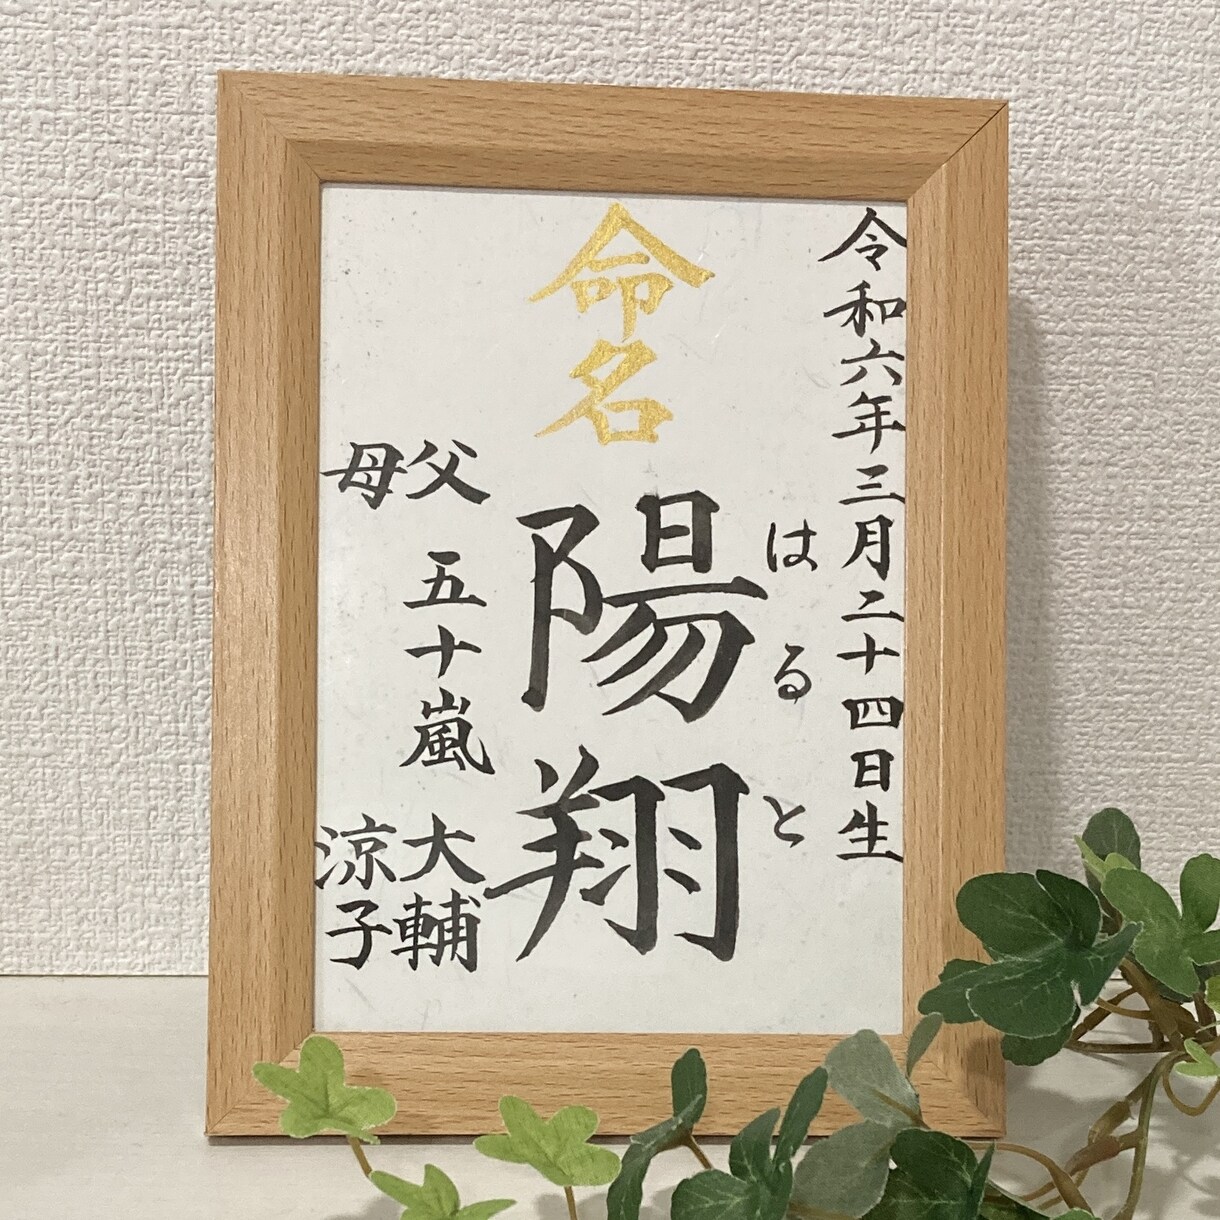 令和六年三月二十四日生
命名
はると
陽翔
父 五十嵐 大輔
母 涼子